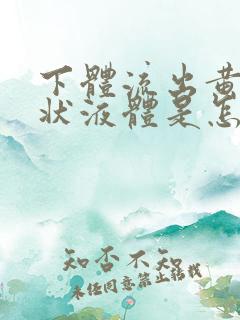 下體流出黄
狀液體是怎
知否不知
未经同意禁止转载